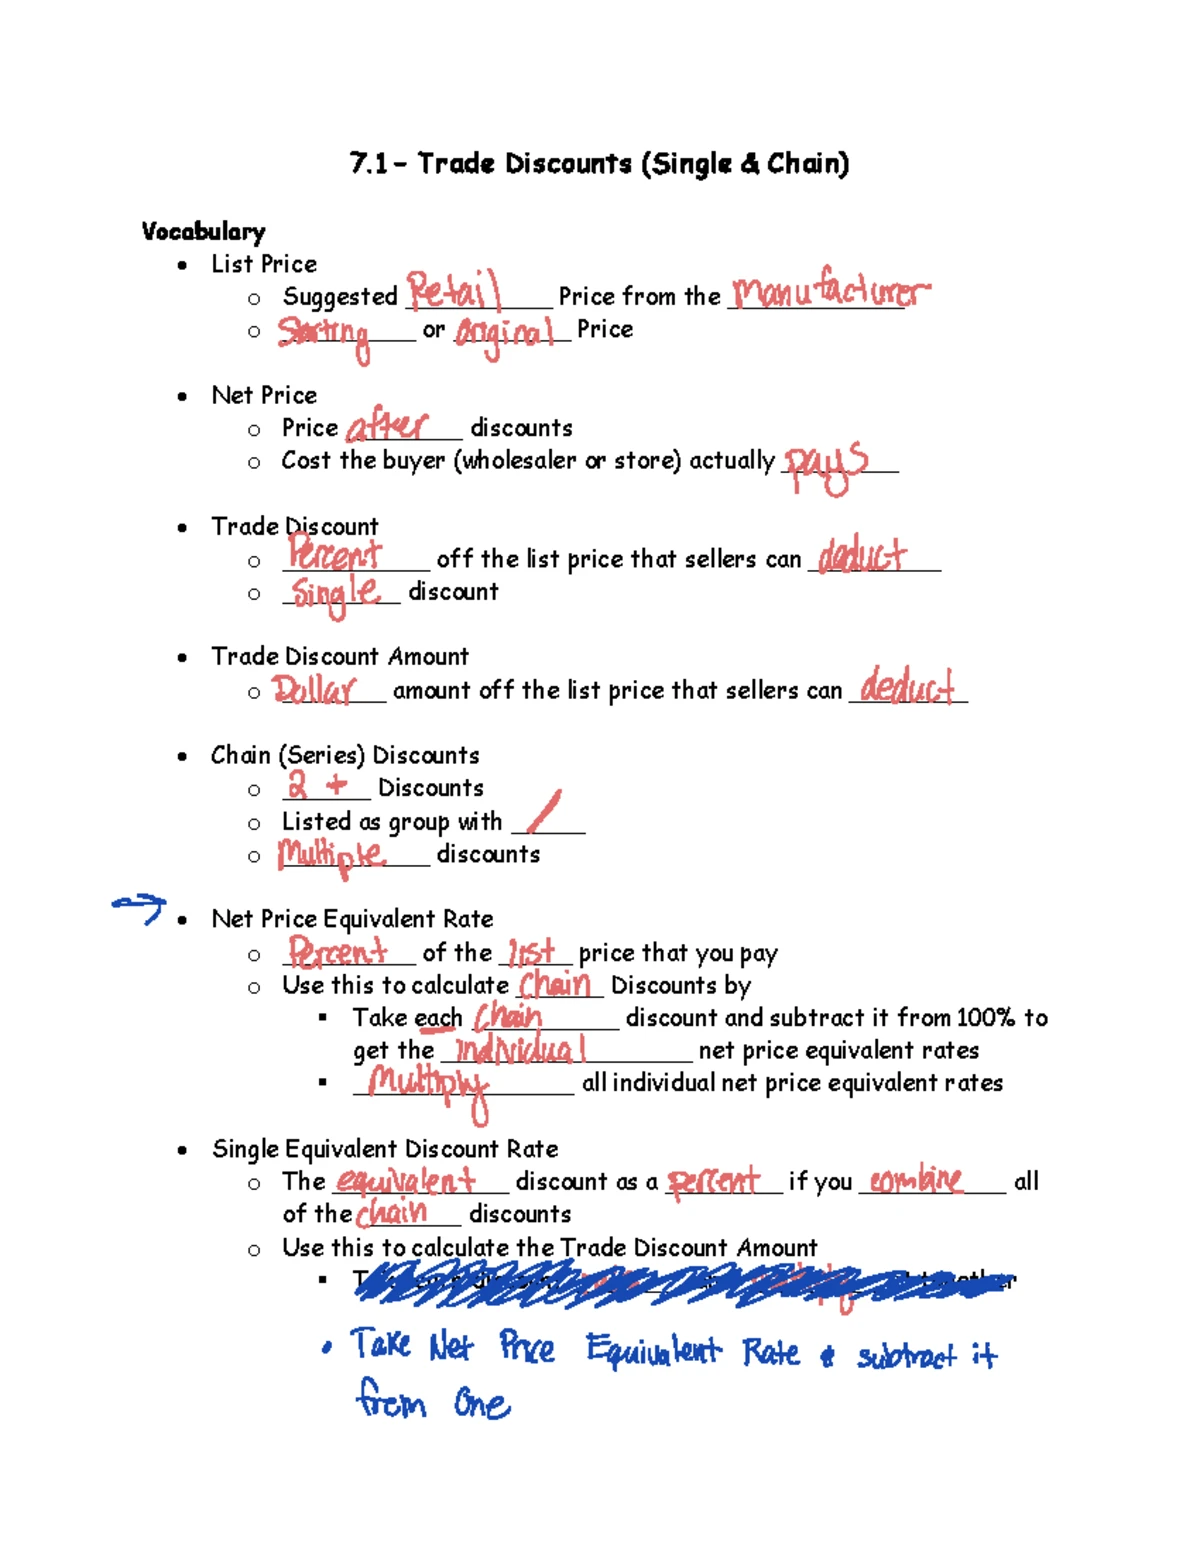 7.1 – Trade Discounts (Single & Chain)
Vocabulary
• List Price
o Suggested Retail Price from the manufacturer
o Starting or Orginal Price
• Net Price
o Price after discounts
o Cost the buyer (wholesaler or store) actually pays
• Trade Discount
o Percent off the list price that sellers can deduct
o Single discount
• Trade Discount Amount
o Dollar amount off the list price that sellers can deduct
• Chain (Series) Discounts
o 2 + Discounts
o Listed as group with /
o Multiple discounts
→ • Net Price Equivalent Rate
o Percent of the list price that you pay
o Use this to calculate Chain Discounts by
▪ Take each Chain discount and subtract it from 100% to
get the individual net price equivalent rates
▪ Multiply all individual net price equivalent rates
• Single Equivalent Discount Rate
o The equivalent discount as a percent if you combine all
of the chain discounts
o Use this to calculate the Trade Discount Amount
• Take Net Price Equivalent Rate & subtract it
from One